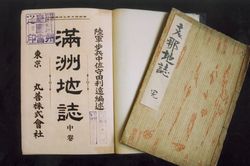 陸軍歩兵中佐守田利遠編述
滿洲地誌 中卷
東京 丸善株式會社
支那地誌
完